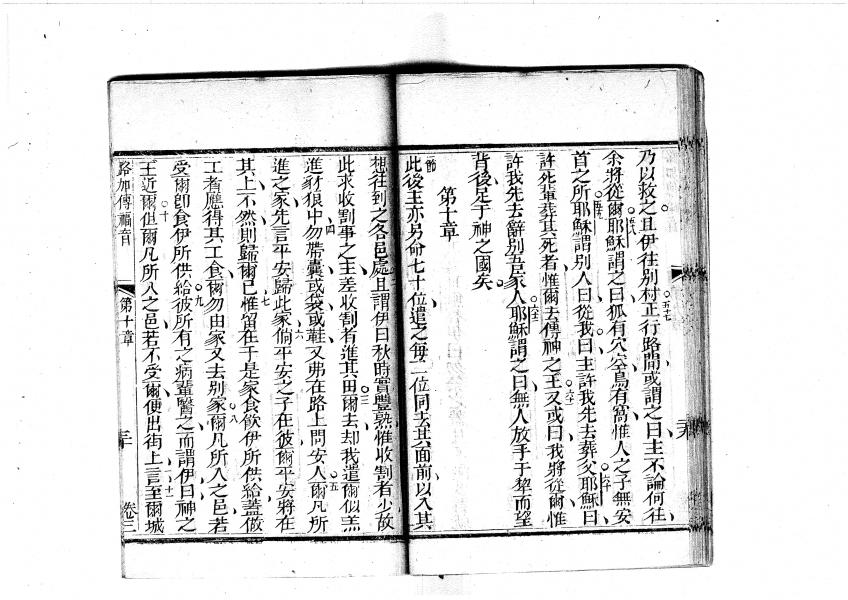 乃以救之且伊往別村正行路間或謂之曰主不論何往
余將從爾耶穌謂之曰狐有穴空鳥有窩惟人之子無安
首之所耶穌謂別人曰從我曰主許我先去葬父耶穌曰
許死輩葬其死者惟爾去傳神之王又或曰我將從爾惟
許我先去辭別吾家人耶穌謂之曰無人放手于犂而望
背後足于神之國矣
第十章
節此後主亦另命七十位遣之每二位同去其面前以入其
想往到之各邑處且謂伊曰秋時實豐熟惟收割者少故
此求收割事之主差收割者進其田爾去却我遣爾似羔
進豺狼中勿帶囊或袋或鞋又弗在路上問安人爾凡所
進之家先言平安歸此家倘平安之子在彼爾平安將在
其上不然則歸爾已惟留在于是家食飲伊所供給蓋做
工者應得其工食爾勿由家又去別家爾凡所入之邑若
受爾即食伊所供給彼所有之病輩醫之而謂伊曰神之
王近爾但爾凡所入之邑若不受爾便出街上言至爾城
路加傳福音 第十章 卷三